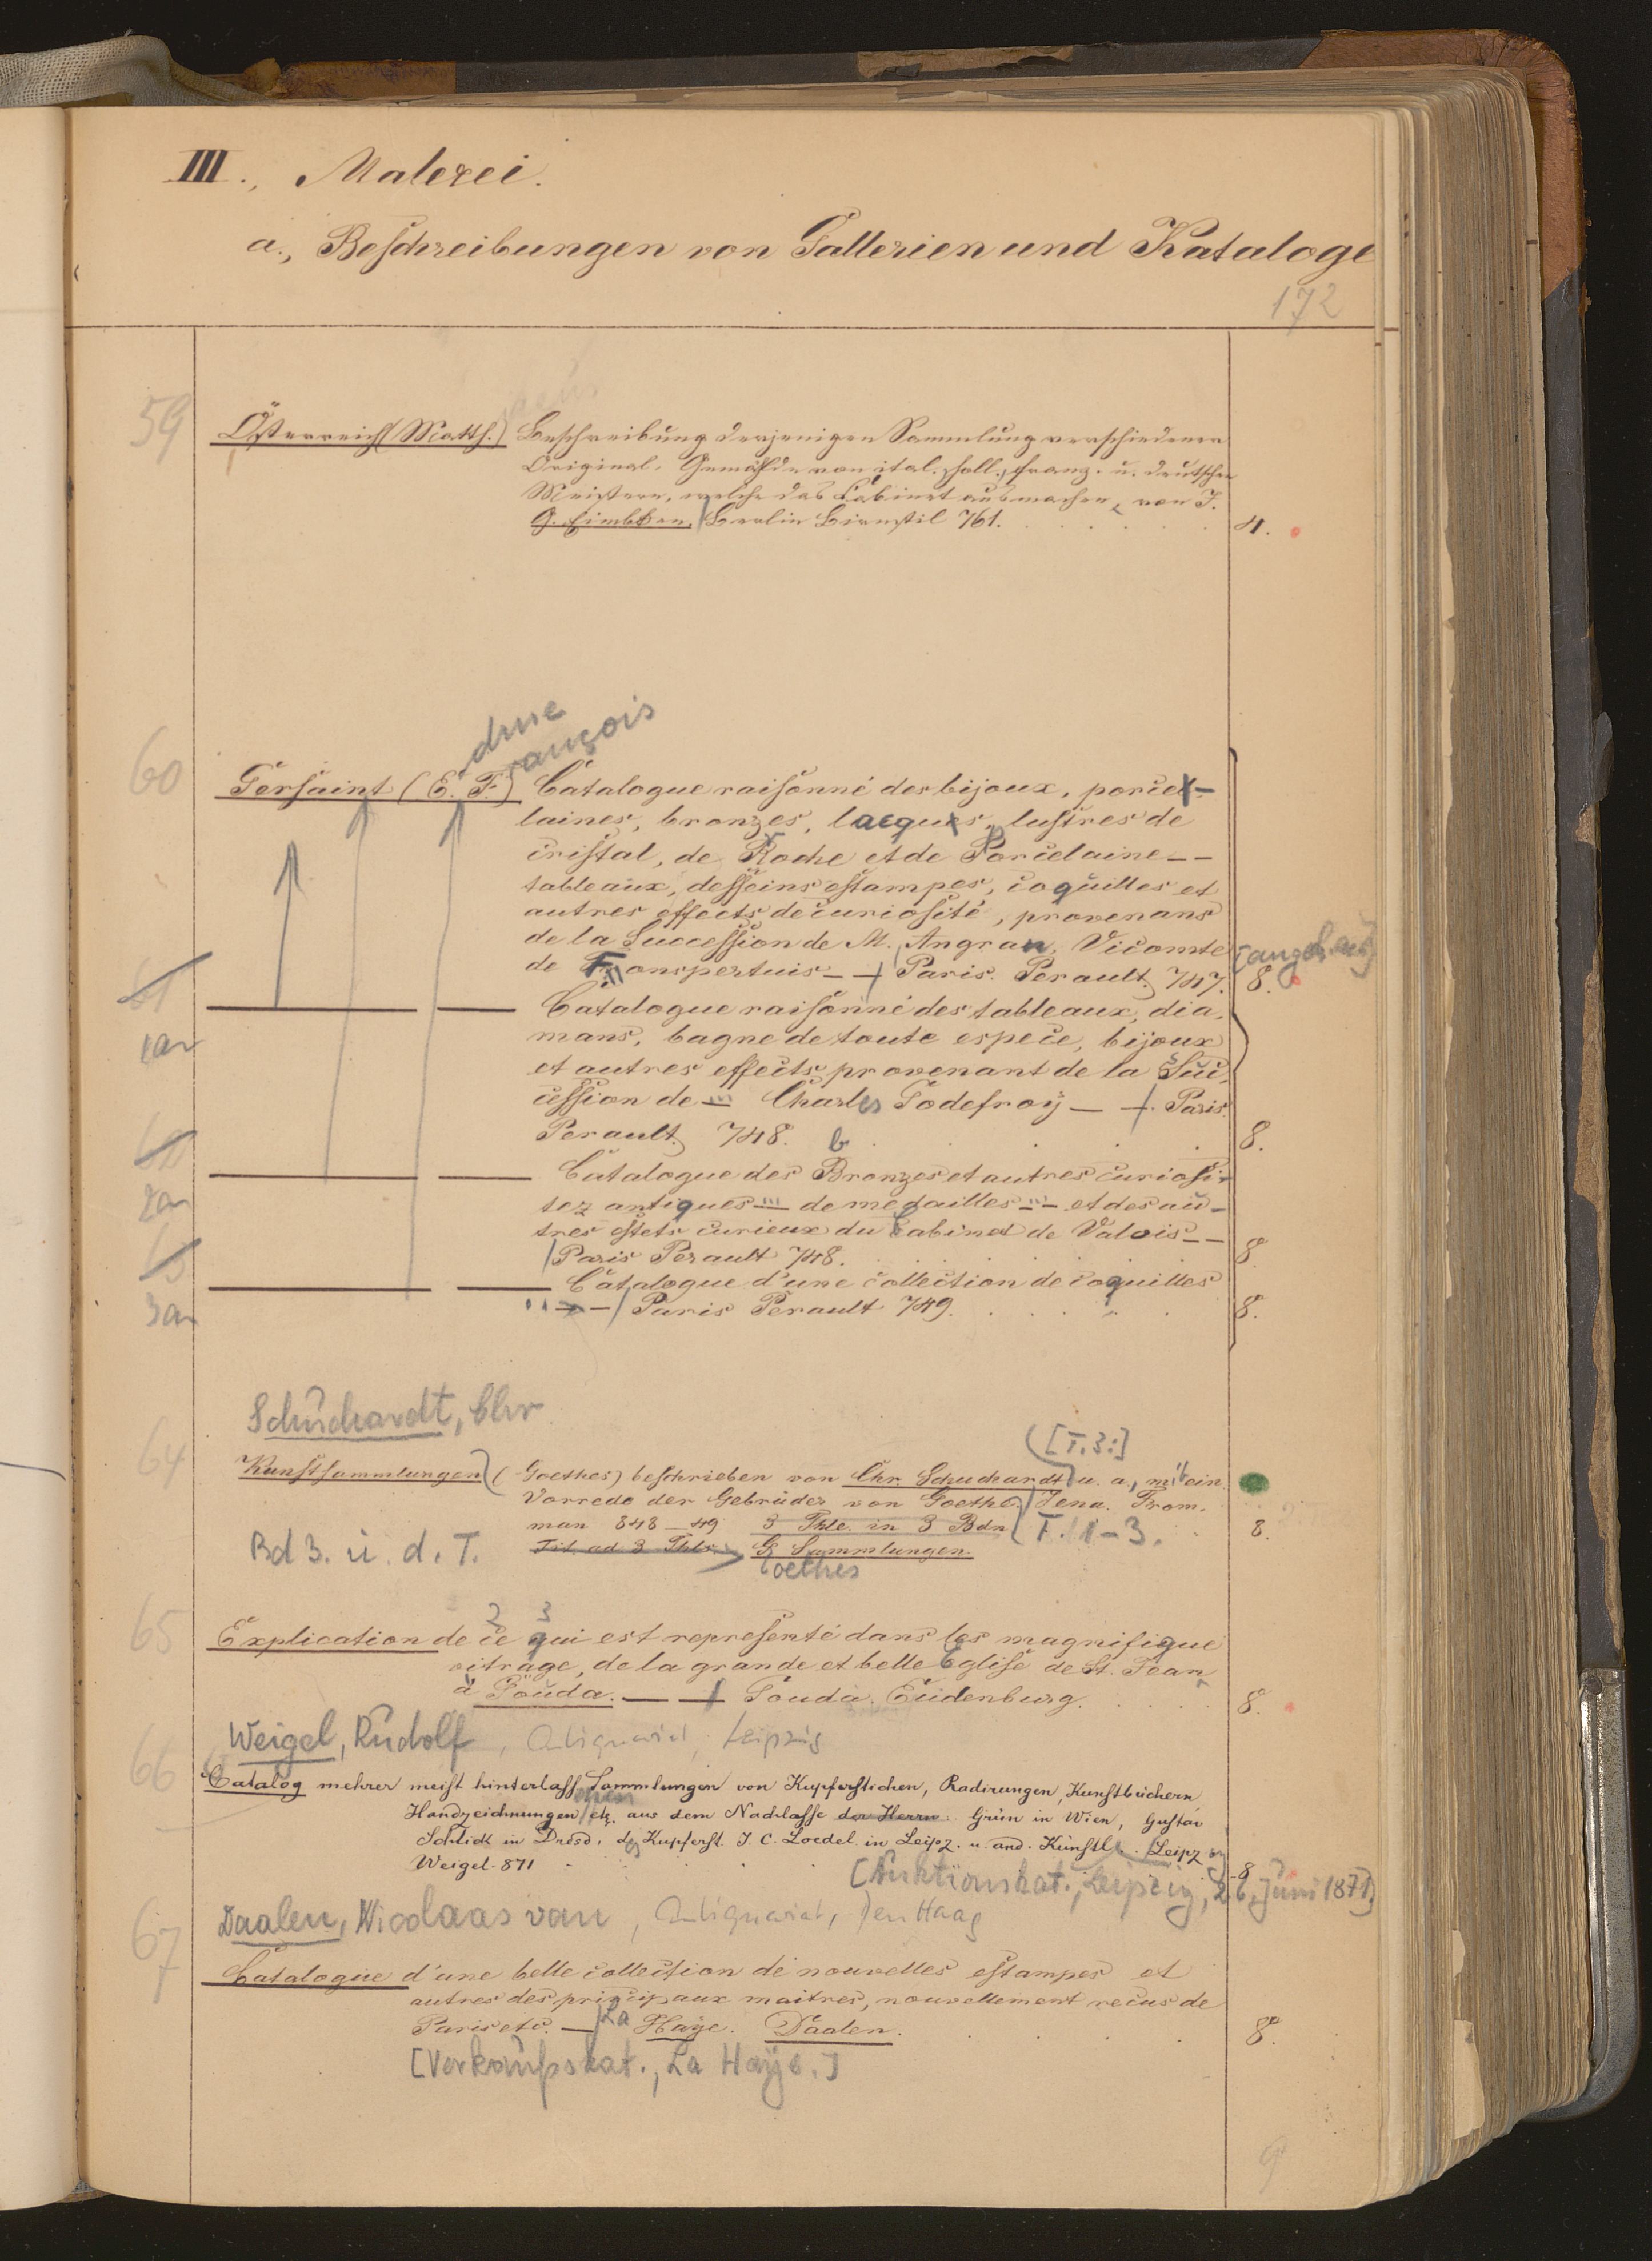 III., Malerei.
a., Beschreibungen von Gallerien und Kataloge
172
59 Österreich (Matth.) Beschreibung derjenigen Sammlung verschiedener
Original-Gemählde von ital., holl., franz. u. deutschen
Meistern, welche das Cabinet ausmachen, von J.
G. Eimbken. Berlin Birnstil 761. 4.
dme
rançois
60 Gersaint (E. F.) Catalogue raisonné des bijoux, porce-
laines, bronzes, lacques, lustres de
cristal, de Roche et de Porcelaine — —
tableaux, desseins estampes, coquilles et
autres effects de curiosité, provenans
de la Succession de M. Angran, Vicomte
de Fonspertuis — — Paris. Perault. 747. 8.
[angeb. an]
61
1an
— — Catalogue raisonné des tableaux, dia-
mans, bagne de toute espece, bijoux
et autres effects provenant de la Suc-
cession de — Charles Godefroÿ — — Paris.
Perault. 748. 8.
62
2an
— — Catalogue des Bronzes et autres curiosi-
tez antiques — de medailles — et des au-
tres effets curieux du Cabinet de Valois — —
Paris Perault 748. 8.
63
3an
— — Catalogue d'une collection de coquilles
— — Paris Perault 749. 8.
Schuchardt, Chr
[T. 3:]
64 Kunstsammlungen (Goethes) beschrieben von Chr. Schuchardt u. a., mit ein.
Vorrede der Gebrüder von Goethe. Jena. From-
man 848—49 3 Thle. in 3 Bdn T. 1-3. 8.
Bd 3. u. d. T. Tit. ad 3 Thlr. G. Sammlungen.
oethes
2 3
65 Explication de ce qui est representé dans les magnifique
vitrage, de la grande et belle Eglise de St. Jean
à Gouda. — — Gouda. Eudenburg. 8.
Weigel, Rudolf, Antiquariat, Leipzig
66 Catalog mehrer meist hinterlass. Sammlungen von Kupferstichen, Radirungen, Kunstbüchern,
Handzeichnungen etz. aus dem Nachlasse der Herrn. Grün in Wien, Gustav
Schlick in Dresd., des Kupferst. J. C. Loedel in Leipz. u. and. Künstl. Leipz
Weigel. 871 8
[Auktionskat., Leipzig, 26. Juni 1871]
Daalen, Nicolaas van, Antiquariat, Den Haag
67 Catalogue d'une belle collection de nouvelles estampes et
autres des principaux maitres, nouvellement recus de
Paris etc. — La Haÿe. Daalen. 8.
[Verkaufskat., La Haÿe.]
9